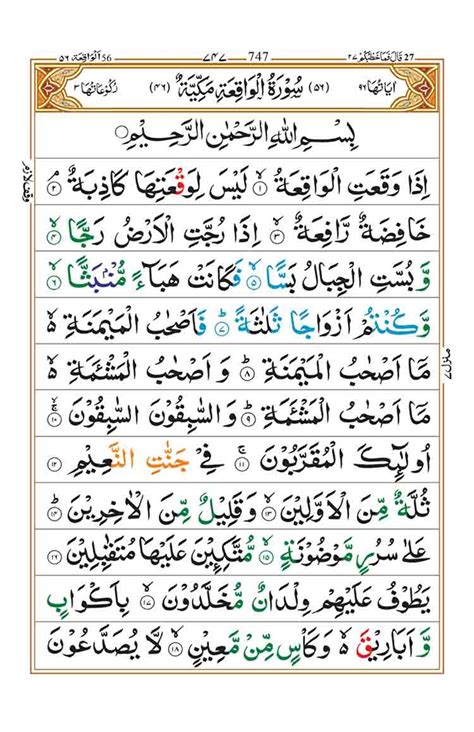 ٥٦ اَلْوَاقِعَة 56 ٧٤٧ 747 قَالَ فَمَا خَطْبُكُمْ ٢٧ 27
اٰيَاتُهَا ٩٦ (٥٦) سُوْرَةُ الْوَاقِعَةِ مَكِّيَّةٌ (٤٦) رُكُوْعَاتُهَا ٣
بِسْمِ اللّٰهِ الرَّحْمٰنِ الرَّحِيْمِ
اِذَا وَقَعَتِ الْوَاقِعَةُ ۙ‏ ١ لَيْسَ لِوَقْعَتِهَا كَاذِبَةٌ ۘ‏ ٢
وقف لازم
خَافِضَةٌ رَّافِعَةٌ ۙ‏ ٣ اِذَا رُجَّتِ الْاَرْضُ رَجًّا ۙ‏ ٤
وَّبُسَّتِ الْجِبَالُ بَسًّا ۙ‏ ٥ فَكَانَتْ هَبَآءً مُّنْۢبَثًّا ۙ‏ ٦
وَّكُنْتُمْ اَزْوَاجًا ثَلٰثَةً ؕ‏ ٧ فَاَصْحٰبُ الْمَيْمَنَةِ ۙ۬
مَاۤ اَصْحٰبُ الْمَيْمَنَةِ ؕ‏ ٨ وَاَصْحٰبُ الْمَشْـَٔمَةِ ۙ۬
منزل ٧
مَاۤ اَصْحٰبُ الْمَشْـَٔمَةِ ؕ‏ ٩ وَالسّٰبِقُوْنَ السّٰبِقُوْنَ ۚۙ‏ ١٠
اُولٰٓئِكَ الْمُقَرَّبُوْنَ ۚ‏ ١١ فِيْ جَنّٰتِ النَّعِيْمِ ١٢
ثُلَّةٌ مِّنَ الْاَوَّلِيْنَ ۙ‏ ١٣ وَقَلِيْلٌ مِّنَ الْاٰخِرِيْنَ ؕ‏ ١٤
عَلٰى سُرُرٍ مَّوْضُوْنَةٍ ۙ‏ ١٥ مُّتَّكِـِٕيْنَ عَلَيْهَا مُتَقٰبِلِيْنَ ١٦
يَطُوْفُ عَلَيْهِمْ وِلْدَانٌ مُّخَلَّدُوْنَ ۙ‏ ١٧ بِاَكْوَابٍ
وَّاَبَارِيْقَ ۙ۬ وَكَاْسٍ مِّنْ مَّعِيْنٍ ۙ‏ ١٨ لَّا يُصَدَّعُوْنَ